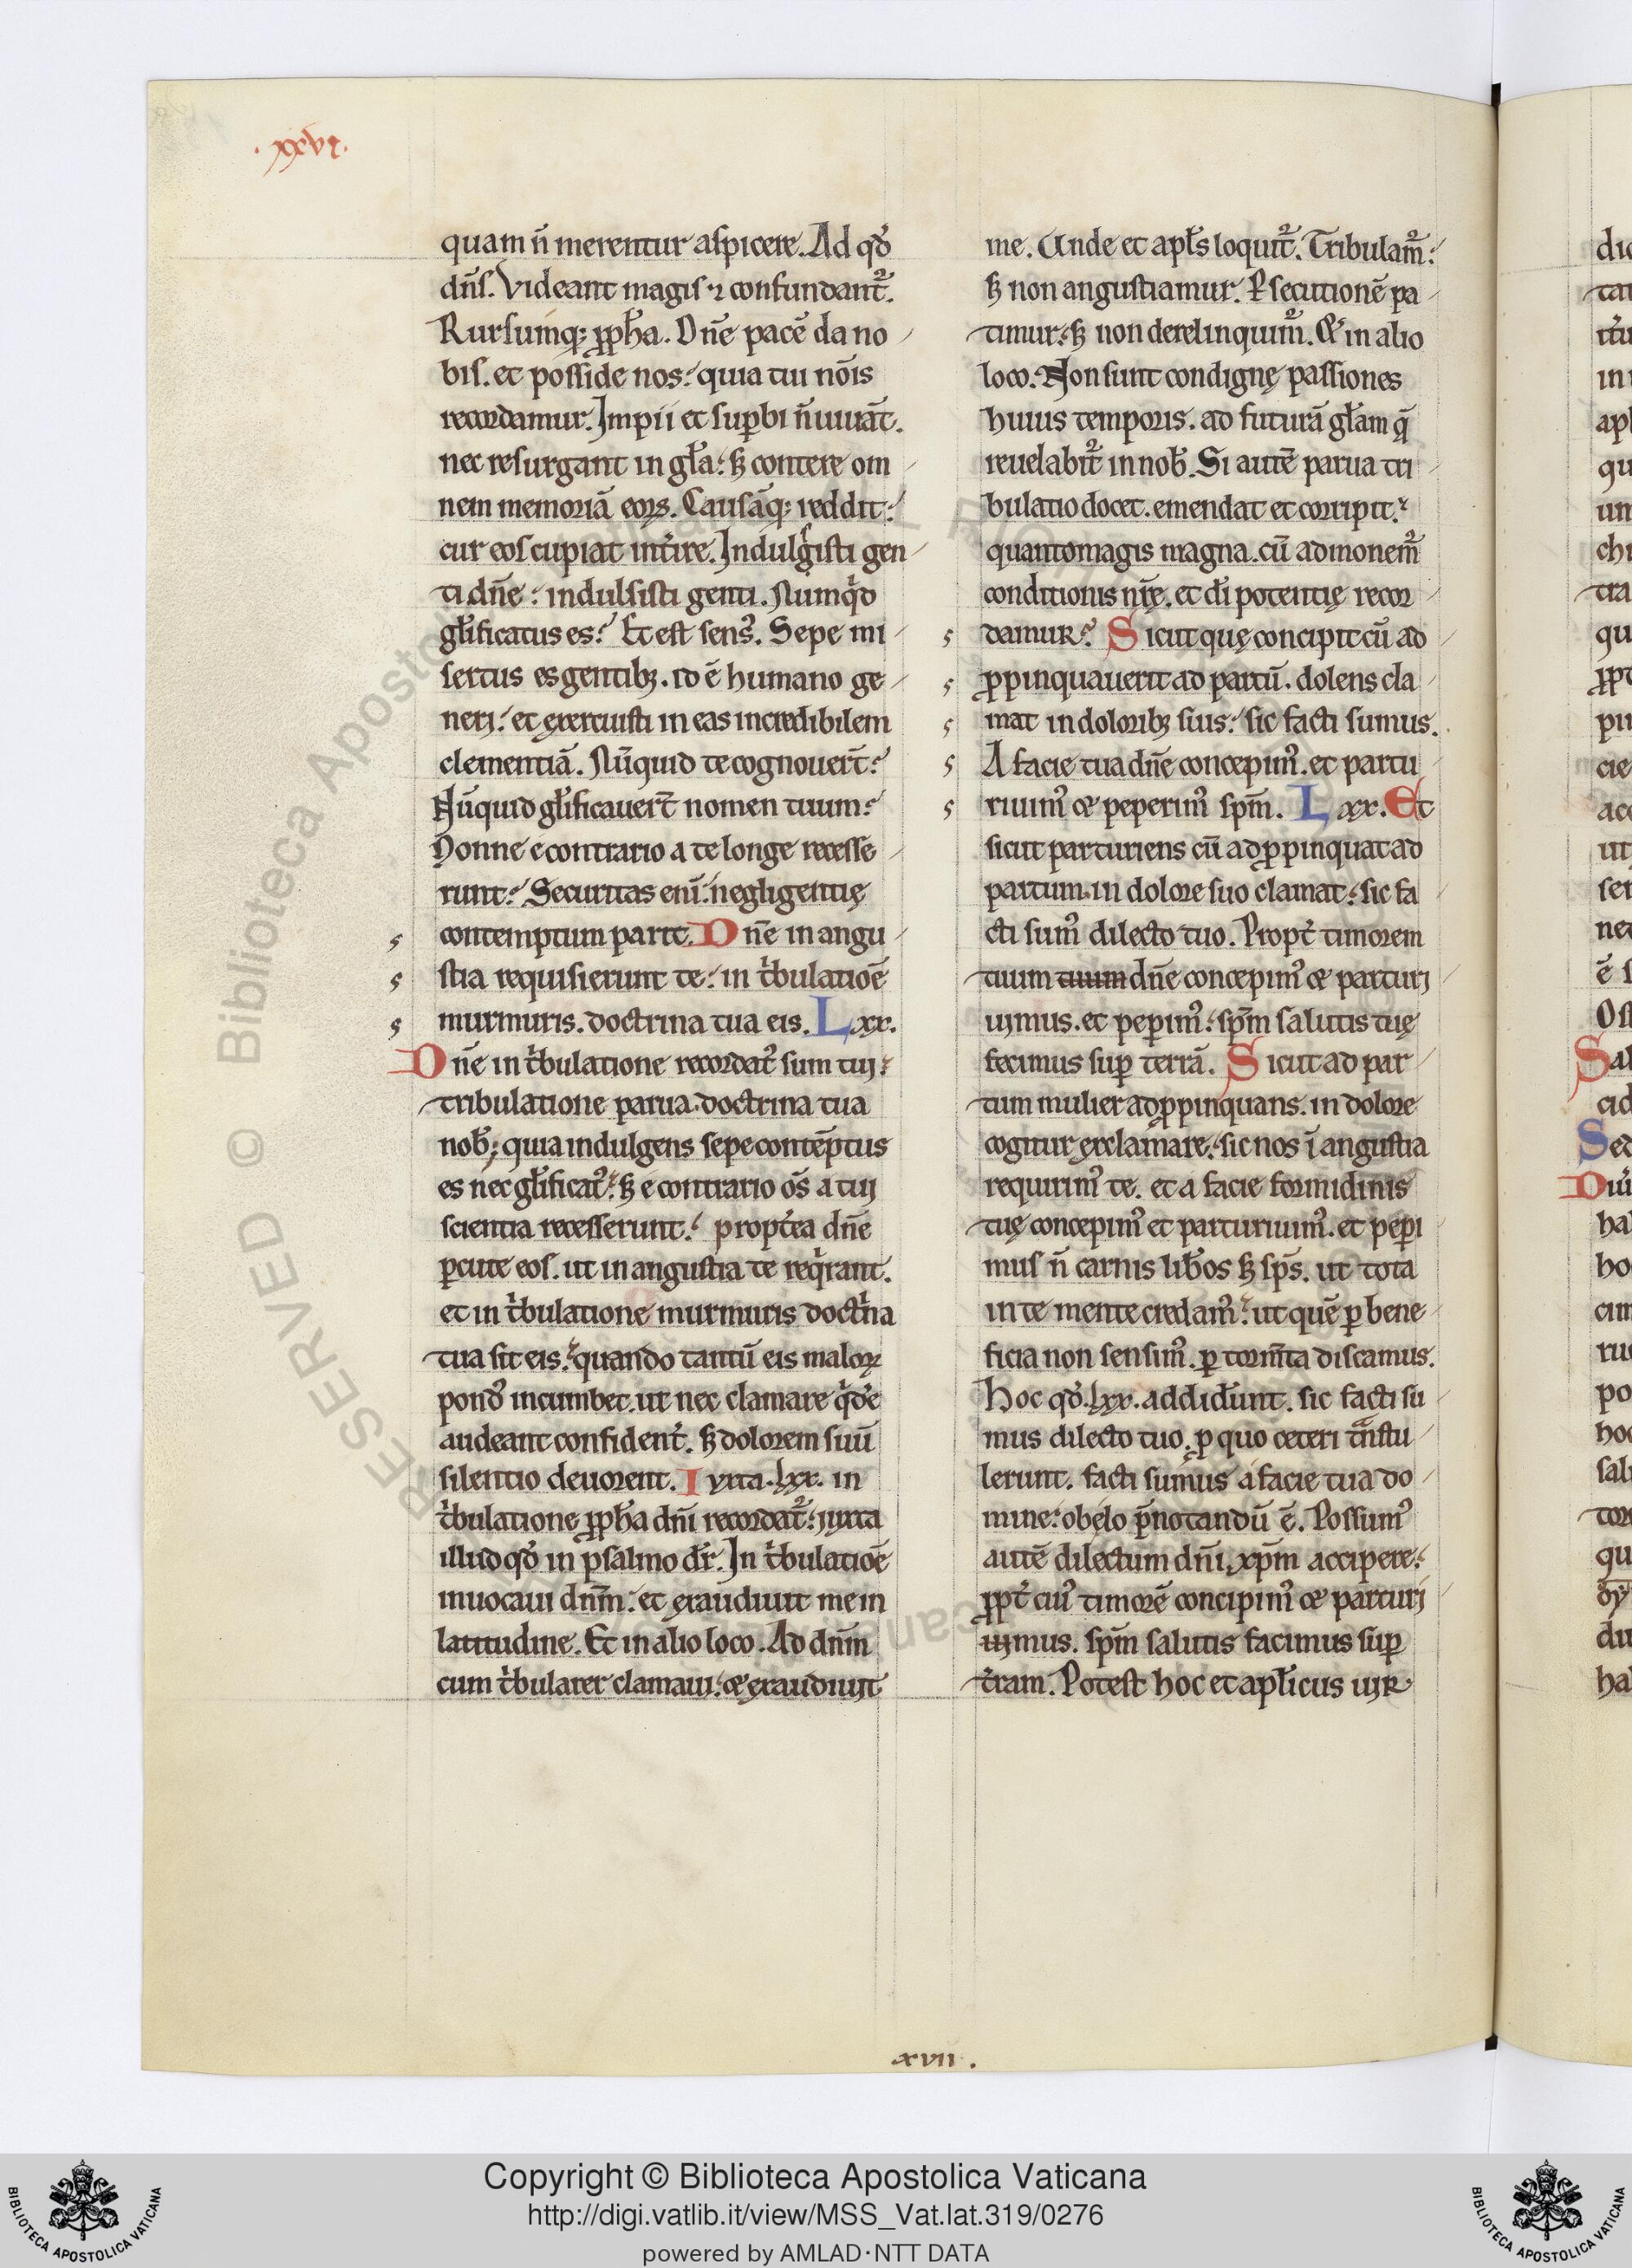 .xxvi.
quam n̄ merentur aspicere. Ad qđ
dn̄s. Videant magis ⁊ confundant᷑.
Rursumq; ꝓph̄a. Dn̄e pacē da no
bis. et posside nos: quia tui nōis
recordamur. Impii et sup̄bi n̄ uiuāt.
nec resurgant in gl̄a: sꝫ contere om
nem memoriā eoꝝ. Causāq; reddit:
cur eos cupiat int̓ire. Indulgisti gen
ti dn̄e: indulsisti genti. Numqͥd
gl̄ificatus es? Et est sensꝰ. Sepe mi
sertus es gentibꝫ. id ē humano ge
neri: et exercuisti in eas incredibilem
clementiā. Nūquid te cognouer̄t?
Nūquid gl̄ificauer̄t nomen tuum?
Nonne econtrario a te longe recesse
runt? Securitas enī negligentię
contemptum parit. Dn̄e in angu
stia requisierunt te: in tͥbulatiōe
murmuris. doctrina tua eis. Lxx.
Dn̄e in tͥbulatione recordatꝰ sum tui:
tribulatione parua doctrina tua
nob̄; quia indulgens sepe contēptus
es nec gl̄ificatꝰ: sꝫ e contrario ōs a tui
scientia recesserunt: propt̓ea dn̄e
ꝑcute eos. ut in angustia te reqͥrant.
et in tͥbulatione murmuris doctͥna
tua sit eis: quando tantū eis maloꝝ
pondꝰ incumbet. ut nec clamare qͥdē
audeant confident̓. sꝫ dolorem suū
silentio deuorent. Iuxta .lxx. in
tͥbulatione ꝓph̄a dn̄i recordat᷑: iuxta
illud qđ in psalmo dr̄. In tͥbulatiōe
inuocaui dn̄m: et exaudiuit me in
latitudine. Et in alio loco. Ad dn̄m
cum tͥbularer clamaui: & exaudiuit
me. Unde et apl̄s loquit᷑. Tribulam᷑:
sꝫ non angustiamur. ꝑsecutionē pa
timur: sꝫ non derelinquim᷑. Et in alio
loco. Non sunt condignę passiones
huius temporis. ad futurā gl̄am q̄
reuelabit᷑ in nob̄. Si autē parua tri
bulatio docet. emendat et corripit:
quantomagis magna. cū admonem᷑
conditionis nr̄ę. et di potentię recor
damur? Sicut quę concipit cū ad
ꝓpinquauerit ad partū. dolens cla
mat in doloribꝫ suis: sic facti sumus.
A facie tua dn̄e concepimꝰ. et partu
riuimꝰ & peperimꝰ spm̄. Lxx. Et
sicut parturiens cū adꝓpinquat ad
partum. in dolore suo clamat: sic fa
cti sumꝰ dilecto tuo. Propt̓ timorem
tuum tuum dn̄e concepimꝰ & parturi
uimus. et pep̄imꝰ: spm̄ salutis tuę
fecimus sup̄ terrā. Sicut ad par
tum mulier adꝓpinquans. in dolore
cogitur exclamare: sic nos ī angustia
requirimꝰ te. et a facie formidinis
tuę concepimꝰ et parturiuimꝰ. et pep̄i
mus n̄ carnis lib̄os sꝫ sps̄. ut tota
in te mente credamꝰ: ut quē ꝑ bene
ficia non sensimꝰ. ꝑ torm̄ta discamus.
Hoc qđ .lxx. addid̓unt. sic facti su
mus dilecto tuo. ꝓ quo ceteri tͣnstu
lerunt. facti sumus a facie tua do
mine: obelo p̄notandū ē. Possumꝰ
autē dilectum dn̄i. xpm̄ accipere:
ꝓpt̓ cuiꝰ timorē concipimꝰ & parturi
mus. spm̄ salutis facimus sup̄
t̓ram. Potest hoc et apl̄icus uir
xvii.
Copyright © Biblioteca Apostolica Vaticana
http://digi.vatlib.it/view/MSS_Vat.lat.319/0276
powered by AMLAD·NTT DATA
BIBLIOTECA APOSTOLICA VATICANA
BIBLIOTECA APOSTOLICA VATICANA